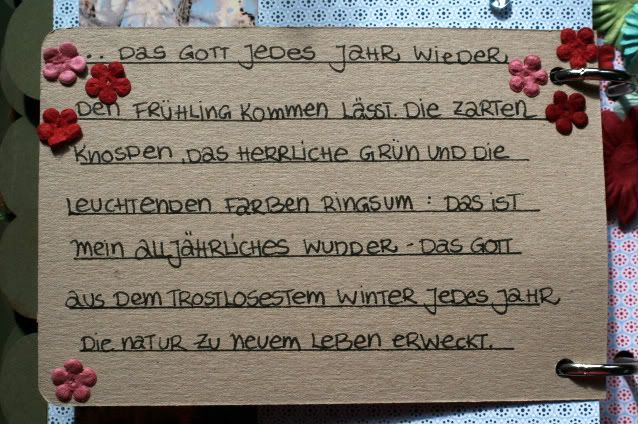 .. Das Gott jedes Jahr wieder
den Frühling kommen lässt. Die zarten
Knospen, das herrliche Grün und die
leuchtenden Farben ringsum : Das ist
mein alljährliches Wunder - das Gott
aus dem trostlosestem Winter jedes Jahr
die Natur zu neuem Leben erweckt.